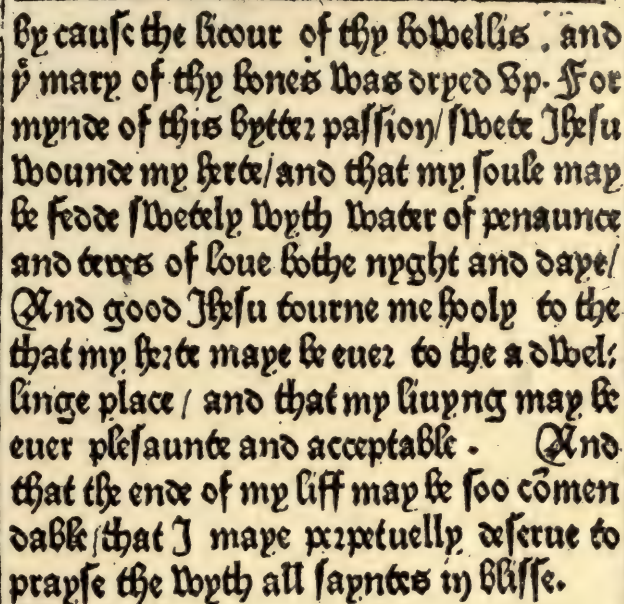 By cause the licour of thy bowellis . and
yͤ mary of thy bones was dryed vp. For
mynde of this bytter passion/ swete Ihesu
wounde my herte/ and that my soule may
be fedde swetely wyth water of penaunce
and teres of loue bothe nyght and daye/
And good Ihesu tourne me hooly to the
that my herte maye be euer to the a dwel:
linge place / and that my liuyng may be
euer plesaunte and acceptable . And
that the ende of my liff may be soo cōmen
dable/ that I maye perpetuelly deserue to
prayse the wyth all sayntes in blisse.